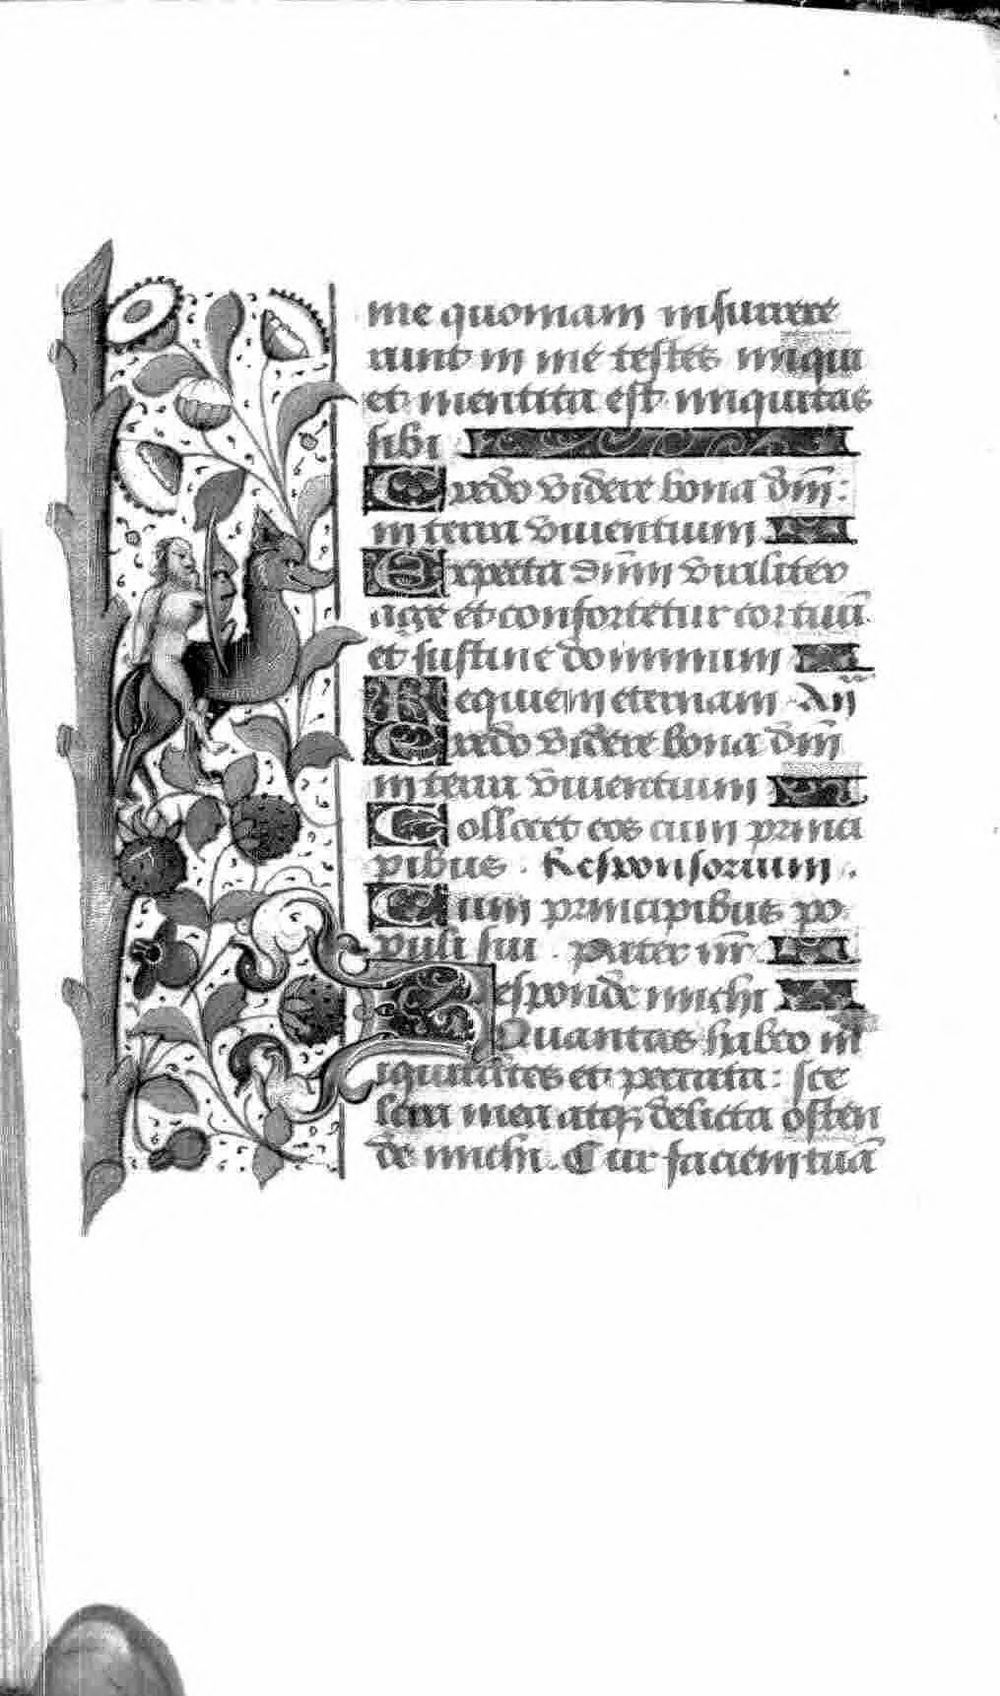 me quoniam insurrexe
runt in me testes iniqui
et mentita est iniquitas
sibi
Credo videre bona dñi:
in terra viventium
Expecta dñm viriliter
age et confortetur cor tuū.
et sustine dominum
Requiem eternam Añ
Credo videre bona dñi
in terra viventium
Collocet eos cum princi
pibus. Responsorium.
Cum principibus po
puli sui. Pater nr̄
Responde michi
Quantas habeo in
iquitates et peccata: sce
lera mea atqꝫ delicta osten
de michi. Cur faciem tuā